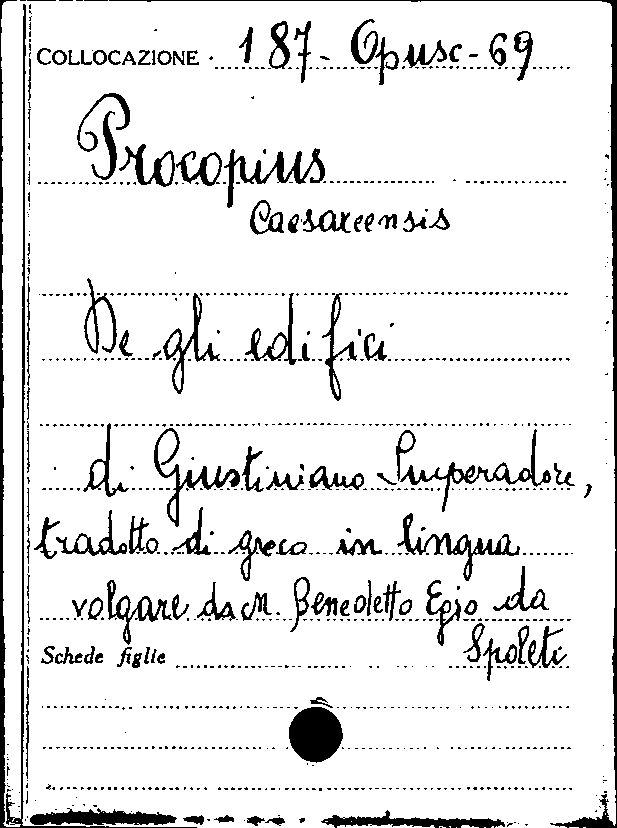 COLLOCAZIONE 187- Opusc-69
Procopius
Caesareensis
De gli edifici
di Giustiniano Imperadore,
tradotto di greco in lingua
volgare da M. Benedetto Egio da
Spoleti
Schede figlie